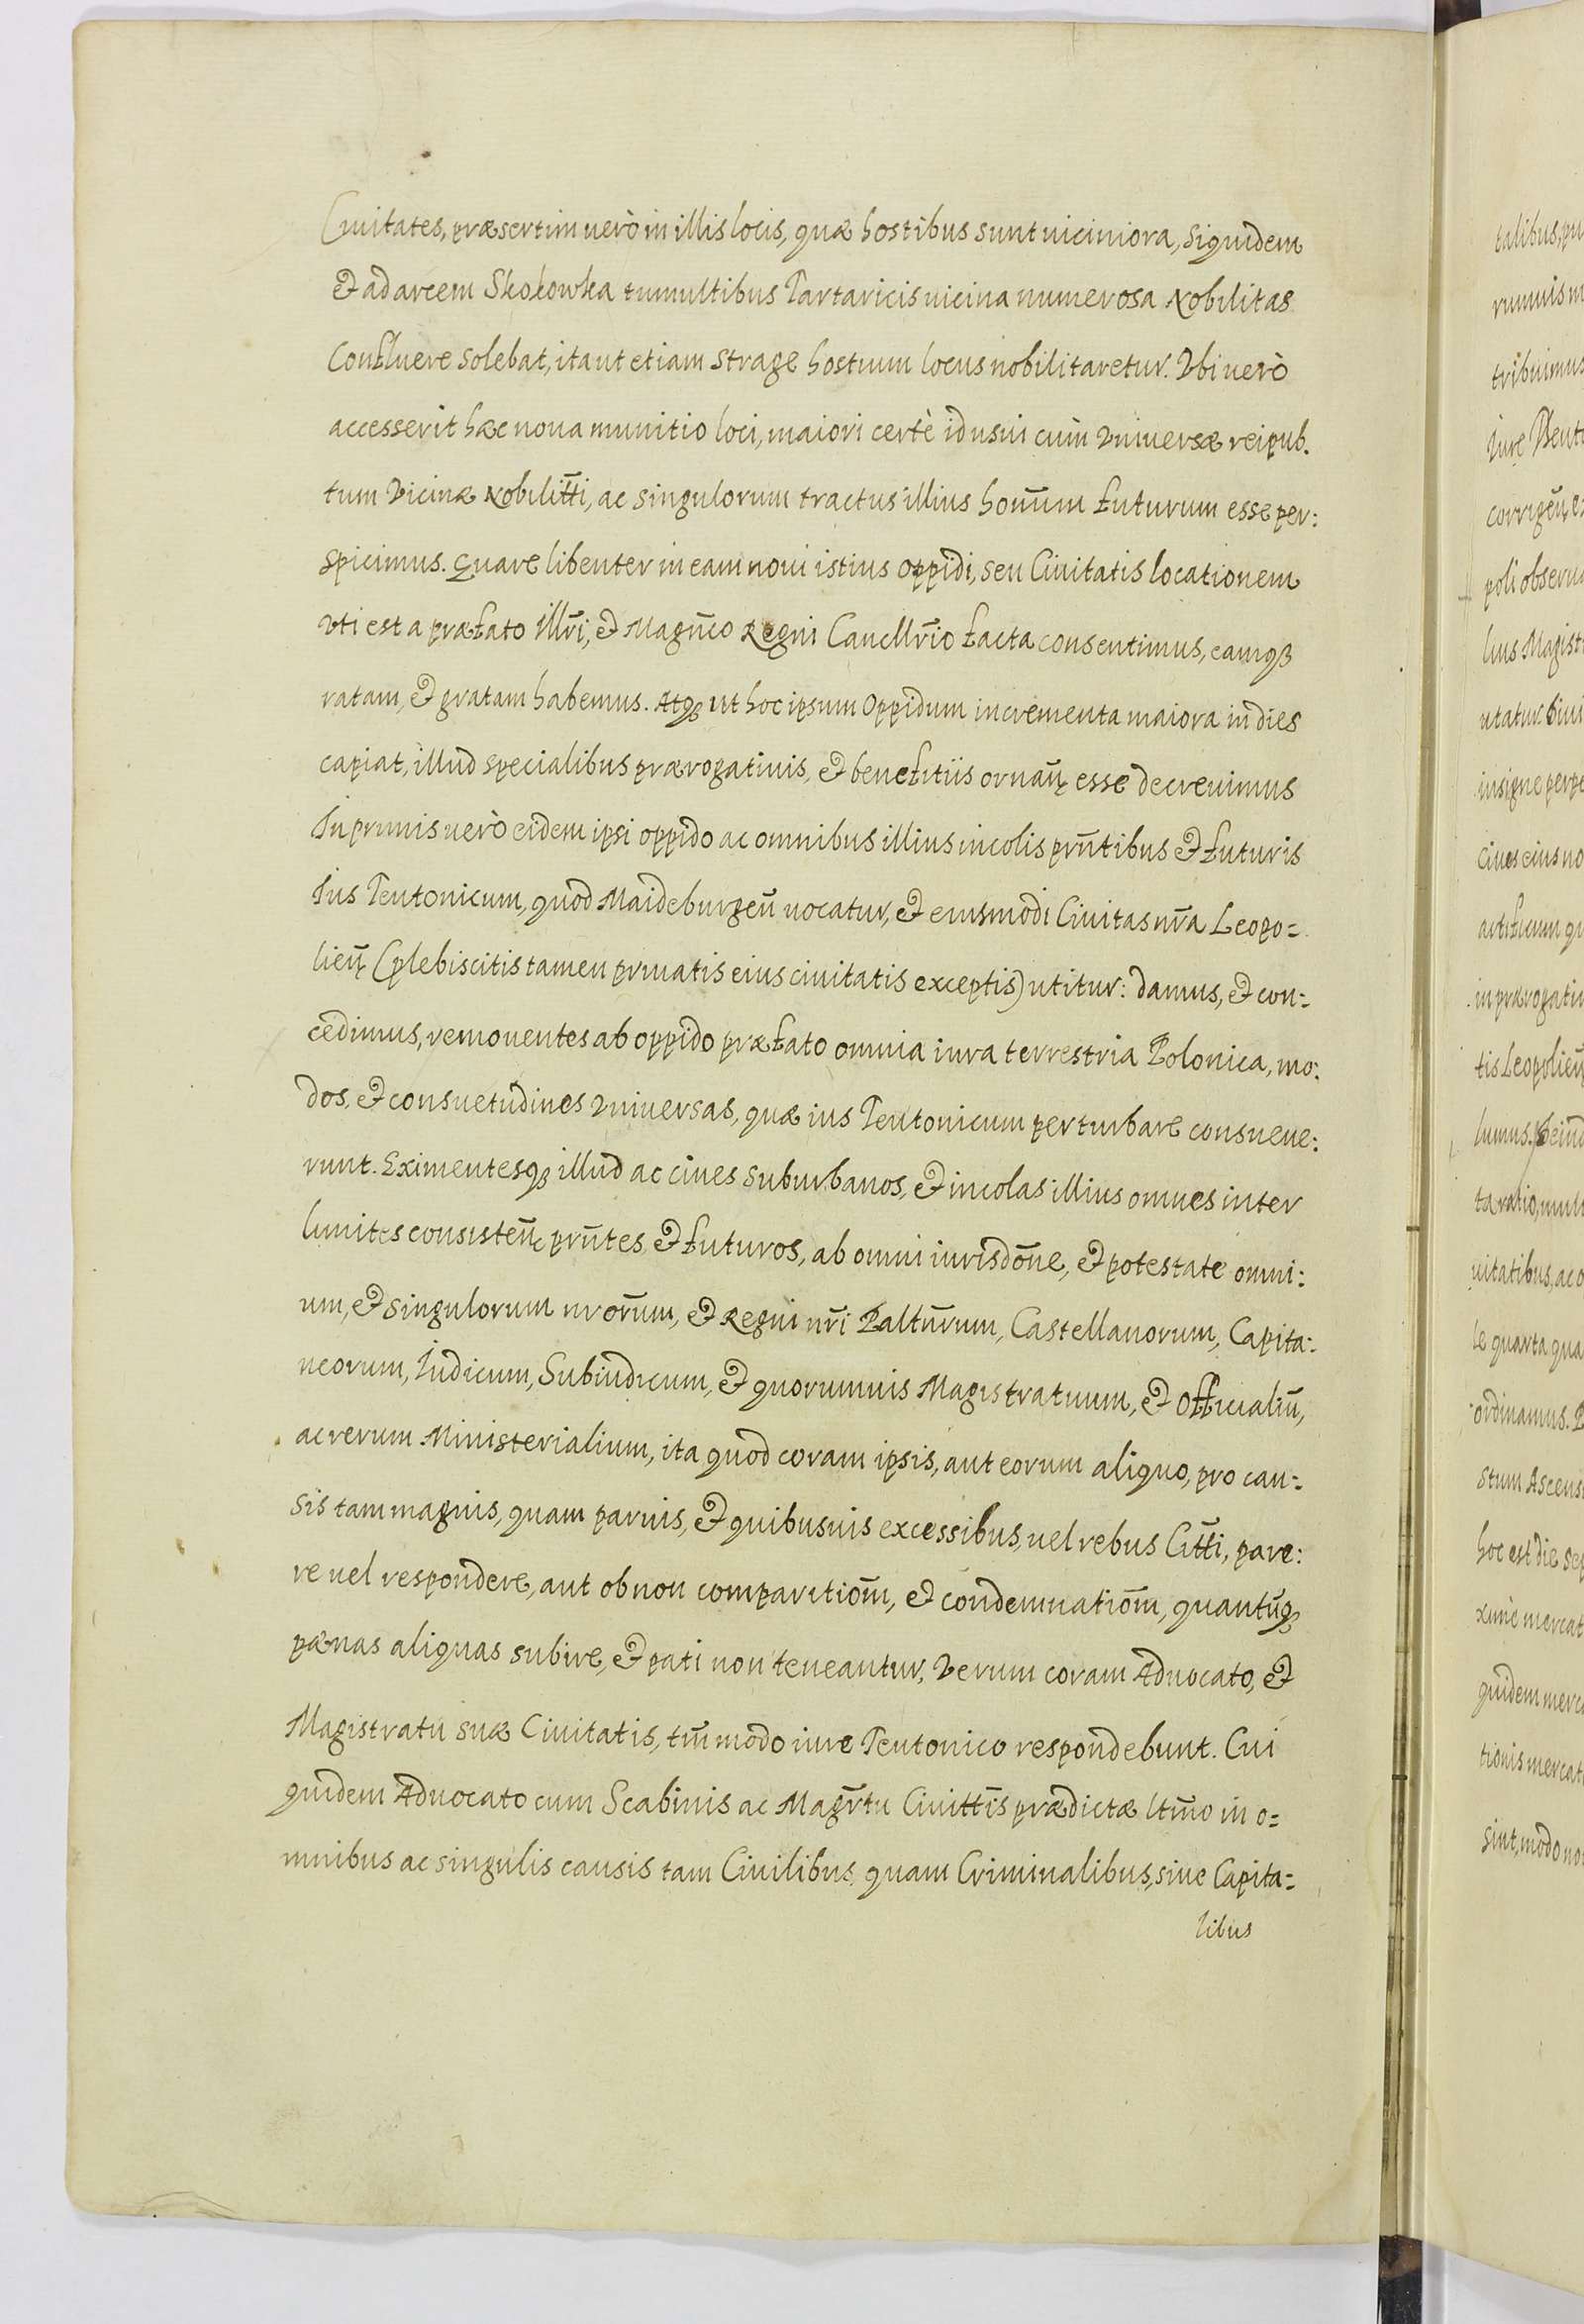 Ciuitates, præsertim uerò in illis locis, quæ hostibus sunt uiciniora, siquidem
& ad arcem Skokowka tumultibus Tartaricis uicina numerosa Nobilitas
Confluere solebat, ita ut etiam strage hostium locus nobilitaretur. Vbi uerò
accesserit hæc noua munitio loci, maiori certè id usui cùm Vniuersæ reipub.
tum Vicinæ Nobilitti, ac singulorum tractus illius hom̄um futurum esse per:
spicimus. Quare libenter in eam noui istius oppidi, seu Ciuitatis locationem
Vti est a præfato Illri, & Magn̄co Regni Cancellr̄io facta consentimus, eamqꝫ
ratam, & gratam habemus. Atqꝫ ut hoc ipsum Oppidum incrementa maiora in dies
capiat, illud specialibus prærogatiuis, & benefitiis ornan̄ esse decreuimus
In primis uerò eidem ipsi oppido ac omnibus illius incolis prn̄tibus & futuris
Ius Teutonicum, quod Maideburgen̄ uocatur, & eiusmodi Ciuitas nr̄a Leopo=
lien̄ (plebiscitis tamen priuatis eius ciuitatis exceptis) utitur: damus, & con=
cedimus, remouentes ab oppido præfato omnia iura terrestria Polonica, mo:
dos, & consuetudines Vniuersas, quæ ius Teutonicum perturbare consueue:
runt. Eximentesqꝫ illud ac ciues suburbanos, & incolas illius omnes inter
limites consisten̄ prn̄tes & futuros, ab omni iurisdōne, & potestate omni:
um, & singulorum nrōrum, & Regni nr̄i Paltn̄rum, Castellanorum, Capita:
neorum, Iudicum, Subiudicum, & quorumuis Magistratuum, & Officialiū,
ac rerum Ministerialium, ita quod coram ipsis, aut eorum aliquo, pro cau:
sis tam magnis, quam paruis, & quibusuis excessibus, uel rebus Citti, pare:
re uel respondere, aut ob non comparitiōm, & condemnatiōm, quantūqꝫ
pænas aliquas subire, & pati non teneantur, Verum coram Aduocato, &
Magistratu suæ Ciuitatis, tm̄modo iure Teutonico respondebunt. Cui
quidem Aduocato cum Scabinis ac Magr̄tu Ciuittis prædictæ ltm̄o in o=
mnibus ac singulis causis tam Ciuilibus, quam Criminalibus, siue Capita=
libus
talibus, pu
tribuimus
poli obserua
lius Magist
insigne perpe
ciues eius no
artificum qu
in prærogatiu
tis Leopolien̄
uitatibus, ac o
le quarta qua
ordinamus. P
stum Ascens
hoc est die sep
xime mercat
quidem merca
tionis mercat
sint, modo no